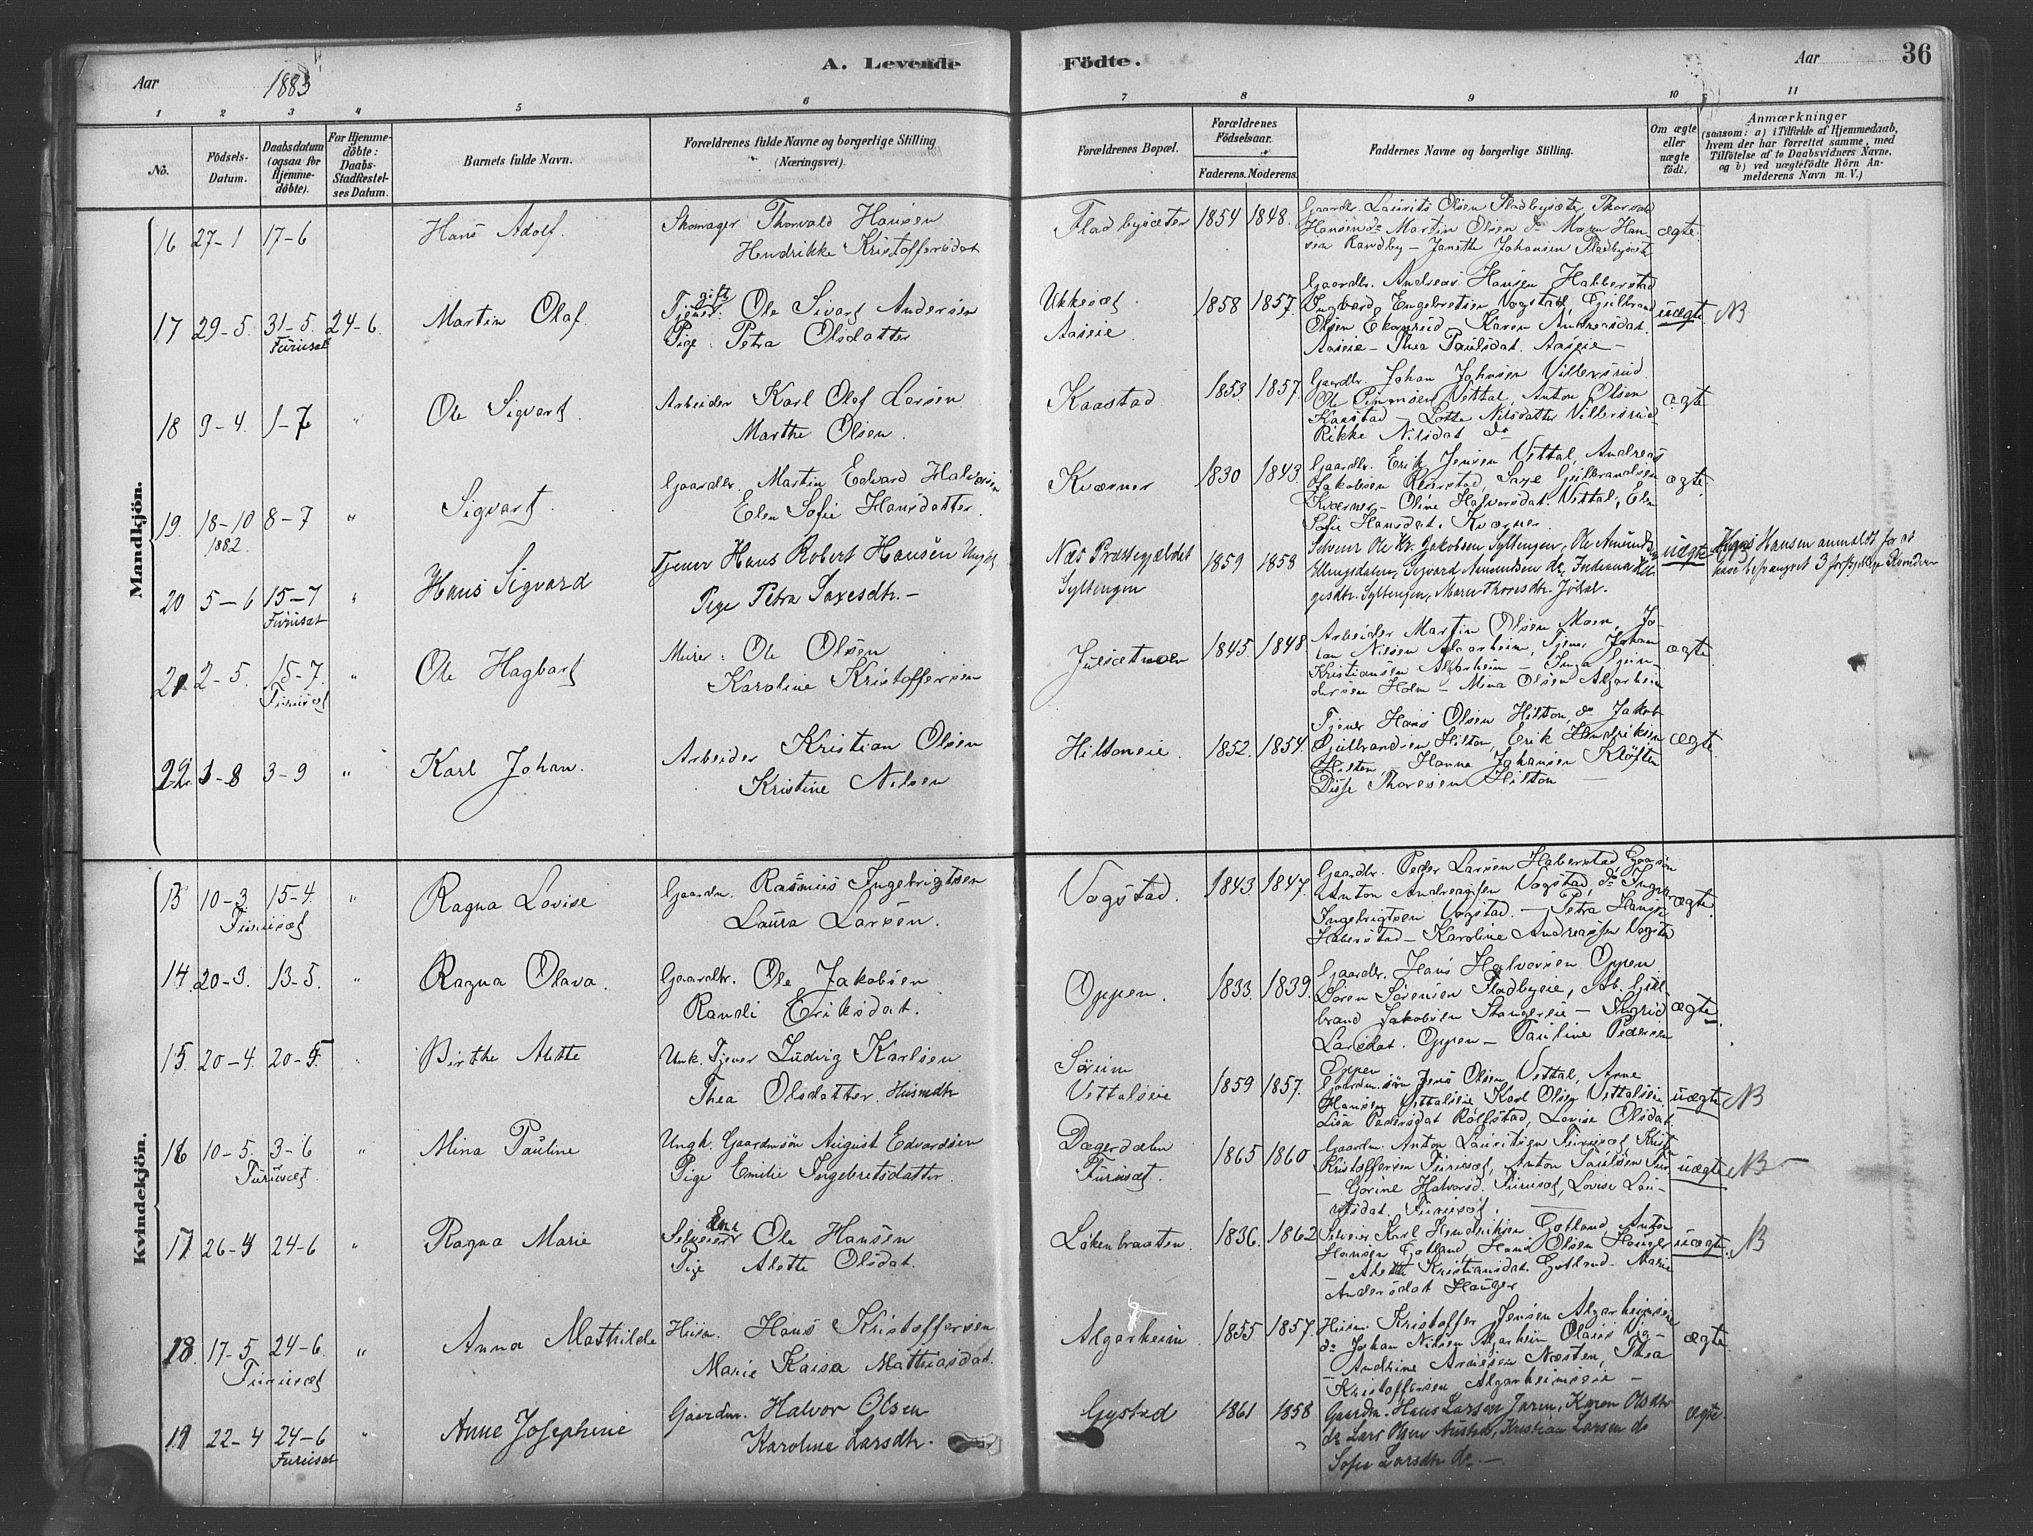 Aar 1883 A. Levende Födte. Aar 36
1 2 3 4 5 6 7 8 9 10 11
No.
Födsels-Datum.
Daabsdatum (ogsaa for Hjemme-döbte).
For Hjemme-döbte: Daabs-Stadfæstel-ses Datum.
Barnets fulde Navn.
Forældrenes fulde Navne og borgerlige Stilling (Næringsvei).
Forældrenes Bopæl.
Forældrenes Födselsaar.
Faderens. Moderens.
Faddernes Navne og borgerlige Stilling.
Om ægte eller uægte födt.
Anmærkninger
(saasom: a) i Tilfælde af Hjemmedaab, hvem der har forrettet samme, med Tilföielse af to Daabsvidners Navne. og b) ved uægtefödte Börn An-melderens Navn m. V.)
Mandkjön.
16 27-1 17-6 Hans Adolf. Skomager Thorvald Hansen
Hendrikke Kristoffersdat
Fladbysæter 1854 1848.
Gaardbr. Laurits Olsen Fladbysæter, Thorvald
Hansen do Martin Olsen do Maren Han-
sen Randby - Janette Johansen Fladbysæt
ægte.
17 29-5. 31-5. 24-6. Furuset
Martin Olaf.
Tjener gift Ole Sivart Andersen
Pige Petra Olsdatter
Ukkesæt Aaseie 1858 1857.
Gaardbr. Andreas Hansen Habberstad
Ingvard Engebretsen Vogstad, Gulbrand
Olsen Ekornrud Karen Andreasdat.
Aaseie - Thea Paulsdat. Aaseie -
uægte NB
18 9-4. 1-7 " Ole Sigvart
Arbeider Karl Olaf Larsen
Marthe Olsen.
Kaastad 1853. 1857.
Gaardbr Johan Johnsen Villersrud
Vettal, Anton Olsen
Kaastad - Lotte Nilsdatter Villersrud
Rikke Nilsdat do
ægte
19. 18-10 1882. 8-7 " Sigvart.
Gaardbr. Martin Edvard Halvorsen
Elen Sofie Hansdatter.
Kværner 1830 1843.
Gaardbr. Erik Jensen Vettal, Andreas
Jakobsen Saxe Gulbrandsen
Kværner - Oline Halvorsdat. Vettal, Elen
Sofie Hansdat. Kværner
ægte.
20 5-6 15-7 Furuset " Hans Sigvard
Tjener Hans Robert Hansen Ungk.
Pige Petra Saxesdtr. -
Næs Præstegjældet Syltingen 1859 1858
Selveier Ole Kr. Jakobsen Syltingen, Ole Amundsen
Ellingsdalen, Sigvard Amundsen do,
Syltingen, Maren Thoresdtr. Jödal.
uægte
Hans Hansen anmeldt for at have besvangret 3 forskjellige Kvinder
21 2-5. 15-7. Furuset " Ole Hagbart
Murer: Ole Olsen
Karoline Kristoffersen
Julsætmoen 1845. 1848.
Arbeider Martin Olsen Moen, Jo-
han Nilsen Algarheim, Tjener Johan
Kristiansen Algarheim - Inga Gun-
dersen Holm - Mina Olsen Algarheim
ægte.
22. 3-8 3-9 " Karl Johan.
Arbeider Kristian Olsen
Kristine Nilsen
Hiltoneie. 1852. 1854.
Tjener Hans Olsen Hilton, do Jakob
Gulbrandsen Hilton, Erik Hendriksen
Hilton, Hanna Johansen Kløften
Disse Thoresen Hilton -
ægte
Kvindekjön.
13 10-3 15-4. Furuset " Ragna Lovise
Gaardm. Rasmus Ingebrigtsen
Laura Larsen.
Vogstad. 1843. 1847.
Gaardbr. Peder Larsen Haberstad
Anton Andreassen Vogstad, do
Ingebrigtsen Vogstad. - Petra Hansd.
Haberstad - Karoline Andreassen Vogstad
ægte.
14. 20-3. 13-5. " Ragna Olava.
Gaardbr. Ole Jakobsen
Randi Eriksdat.
Oppen. 1833. 1839.
Gaardbr. Hans Halvorsen Oppen
Søren Sørensen Fladbyeie, Arb. Gul-
brand Jakobsen Stangereie - Ingrid
Larsdat. Oppen - Pauline Pedersen
Oppen
ægte
15. 20-4. 20-5. Birthe Alette
Unk. Tjener Ludvig Karlsen
Thea Olsdatter. Husmdtr
Sørum Vettaleie 1859 1857.
Gaardm.søn Jens Olsen Vettal, Arne
Hansen Vettaleie Karl Olsen Vettaleie
Lisa Pedersdat Rolfstad, Lovise Olsdat
uægte NB
16 10-5. 3-6 Furuset " Mina Pauline
Ungk. Gaardmsøn August Edvardsen
Pige Emilie Ingebretsdatter.
Dagerdalen Furuset. 1865 1860
Gaardm. Anton Lauritsen Furuset
Kristoffersen Furuset, Anton Paulsen Fur
- Gorine Halvorsd. Furuset, Lovise Lau-
ritsdat. Furuset.
uægte NB -
17 26-4 24-6 " Ragna Marie
Selveier Enk Ole Hansen
Pige Alette Olsdat.
Løkenbraaten. 1836. 1862
Selveier Karl Hendriksen Gotland Anton
Hansen Gotland Hans Olsen Hauger
- Alette Kristiansdat. Gotland - Marie
Andersdat Hauger
uægte. NB
18. 17-5. 24-6. Furuset " Anna Mathilde
Husm. Hans Kristoffersen
Marie Kaisa Mathiasdat.
Algarheim 1855 1857.
Husm. Kristoffer Jensen Algarheimseie
do Johan Nilsen Algarheim
- Andrine Arnesen Næsten, Thea
- Kristoffersen Algarheimseie -
ægte
19 22-4 24-6 Furuset " Anne Josephine
Gaardm. Halvor Olsen
Karoline Larsdtr.
Gystad 1861 1858
Gaardm. Hans Larsen Karen Olsdtr
do Lars Olsen Kristian Larsen do
Sofie Larsdtr do -
ægte.